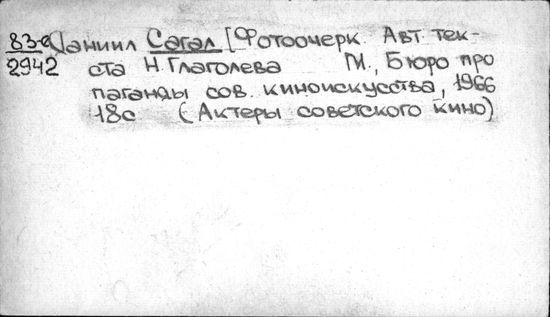 83-2 Даниил Сагал [Фотоочерк. Авт. тек-
2942 ста Н. Глаголева М., Бюро про
паганды сов. киноискусства, 1966
18с (Актеры советского кино)